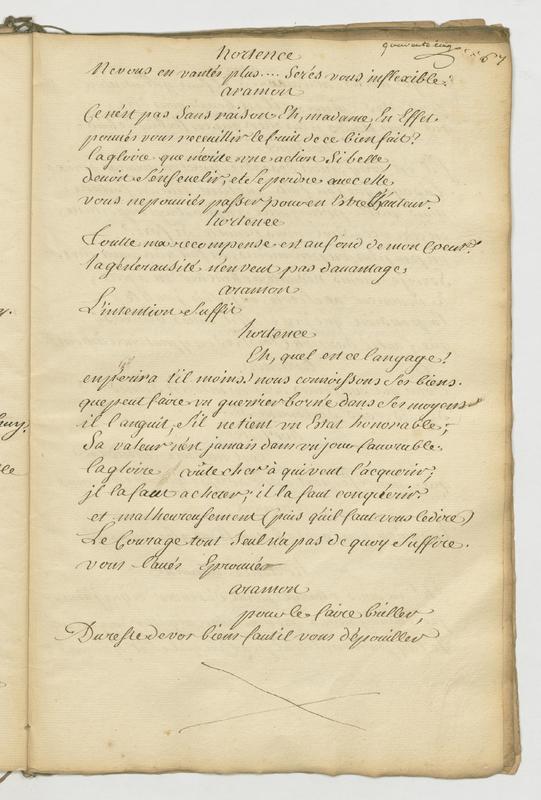 quarante cinq 67
hortence
Ne vous en vantés plus.... Serés vous inflexible?
aramon
Ce n'est pas sans raison Eh, madame, En Effet.
pouviés vous receuillir le fruit de ce bien fait?
la gloire que mérite une action Si belle,
devoit s'ensevelir, et Se perdre avec elle,
vous ne pouviés passer pour en Estre l'auteur.
hortence
Toutte ma recompense est au fond de mon Coeur.
la génerausité n'en veut pas davantage,
aramon
L'intention Suffit
hortence
Eh, quel est ce langage!
en périra t'il moins? nous connoissons Ses biens.
que peut faire un guerrier borné dans Ses moyens
il languit, s'il ne tient un Estat honorable;
Sa valeur n'est jamais dans un jour favorable.
la gloire coûte cher à qui veut l'acquerir;
jl la faut acheter, il la faut conquérir
et malheureusement (puis qu'il faut vous le dire)
Le Courage tout Seul n'a pas de quoy Suffire.
vous l'avés Eprouvé
aramon
pour le faire briller,
Du reste de vos biens faut il vous dépouiller